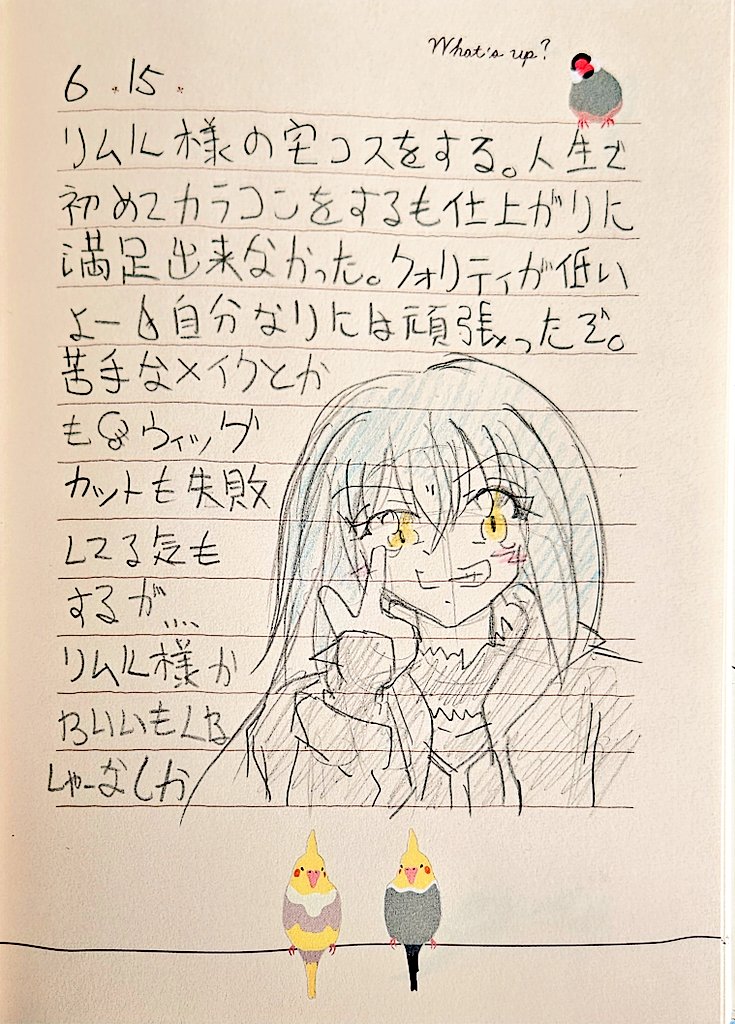 What's up?
6.15.
リムル様の宅コスをする。人生で
初めてカラコンをするも仕上がりに
満足出来なかった。クォリティが低い
よー 自分なりには頑張ったぞ。
苦手なメイクとか
も ウィッグ
カットも失敗
してる気も
するが...
リムル様か
わいいもんね
しゃーなしか